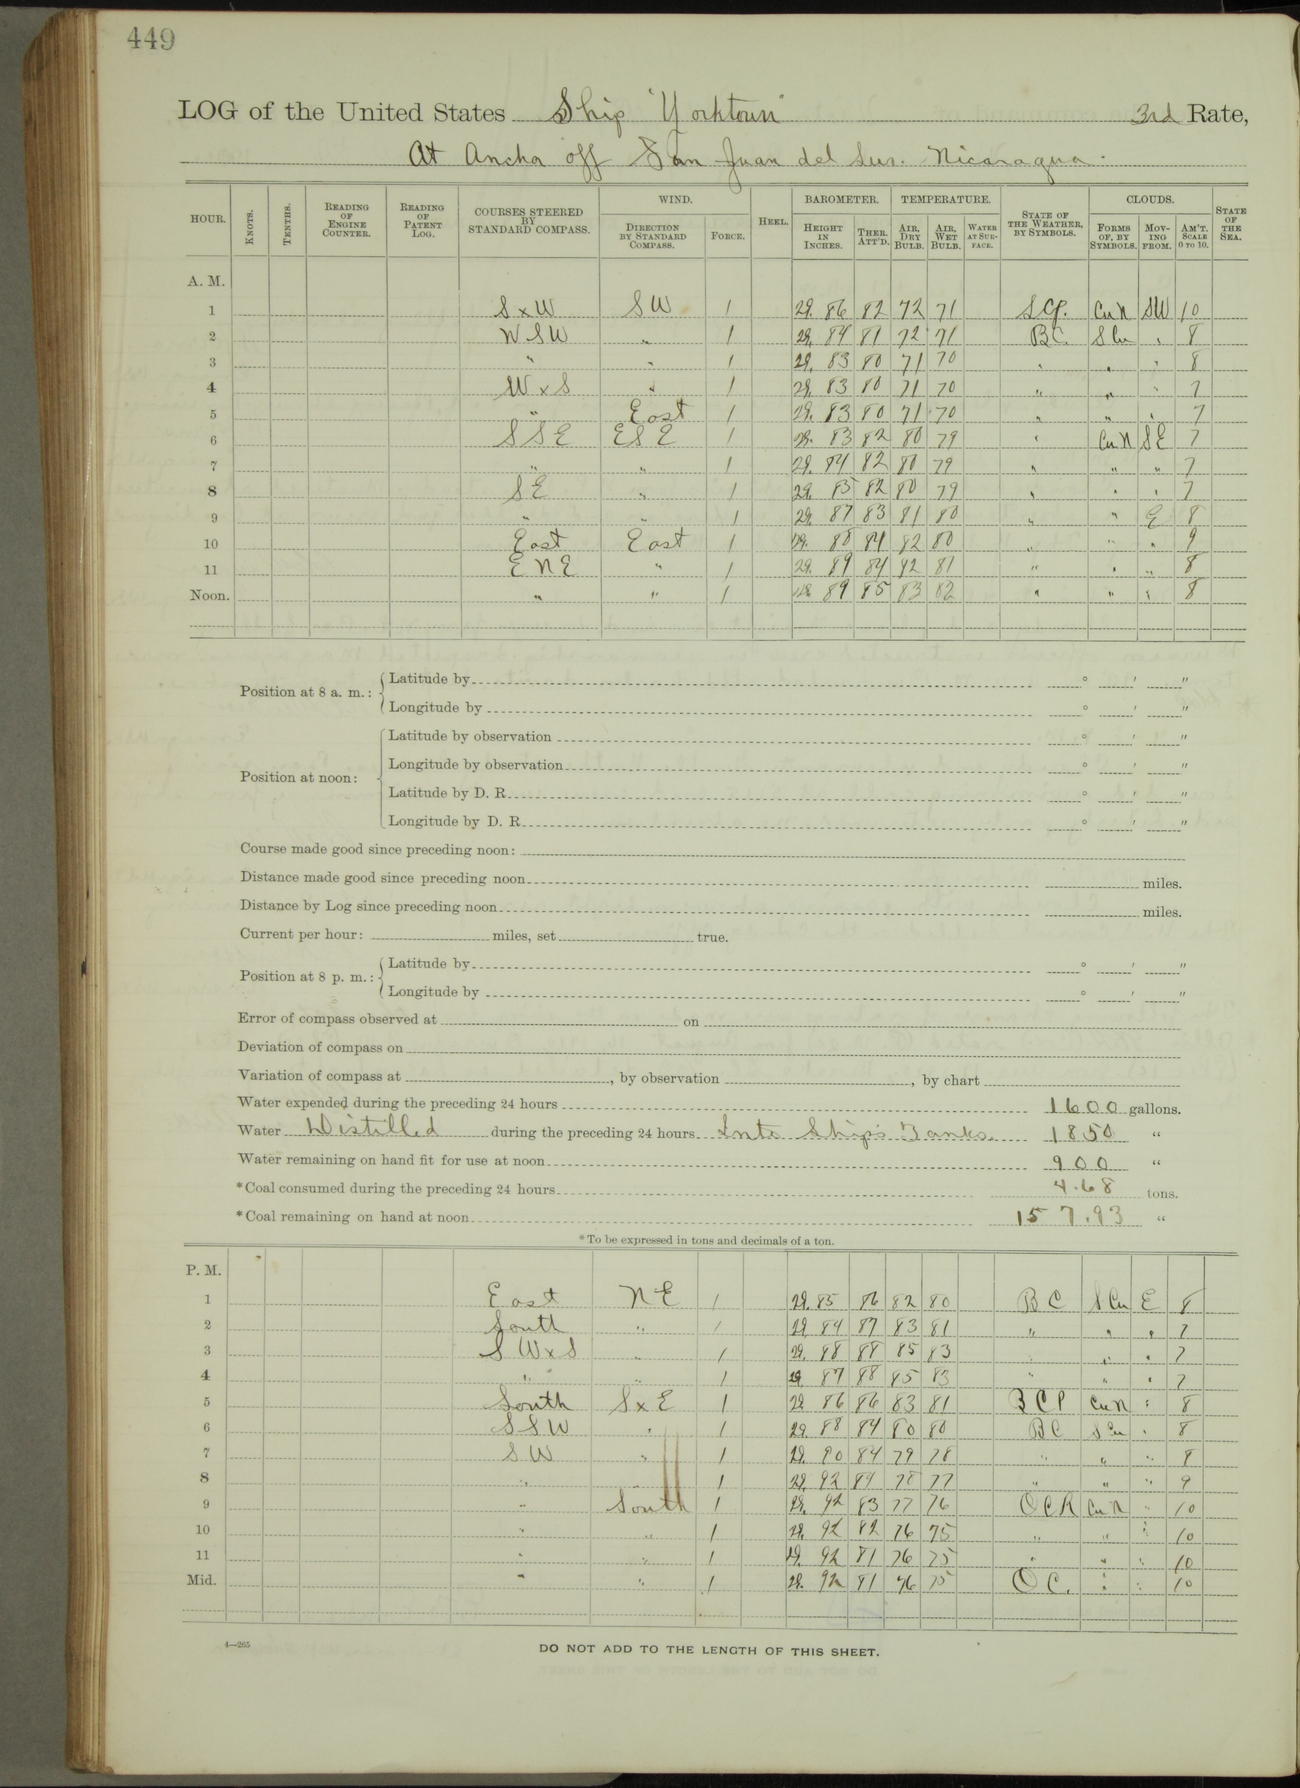 449
LOG of the United States Ship "Yorktown" 3rd Rate,
At Anchor off San Juan del Sur. Nicaragua.
HOUR. KNOTS. TENTHS. READING OF ENGINE COUNTER. READING OF PATENT LOG. COURSES STEERED BY STANDARD COMPASS. WIND. DIRECTION BY STANDARD COMPASS. FORCE. HEEL. BAROMETER. HEIGHT IN INCHES. THER. ATT'D. TEMPERATURE. AIR, DRY BULB. AIR, WET BULB. WATER AT SURFACE. STATE OF THE WEATHER, BY SYMBOLS. CLOUDS. FORMS OF, BY SYMBOLS. MOVING FROM. AM'T. SCALE 0 TO 10. STATE OF THE SEA.
A. M.
1 S x W SW 1 29. 86 82 72 71 CuN SW 10
2 WSW " 1 29. 84 81 72 71 BC SCu " 8
3 " " 1 29. 83 80 71 70 " " " 8
4 W x S " 1 29. 83 80 71 70 " " " 7
5 " East 1 29. 83 80 71 70 " " " 7
6 SSE ESE 1 29. 83 82 80 79 " CuN SE 7
7 " " 1 29. 84 82 80 79 " " " 7
8 SE " 1 29. 85 82 80 79 " " " 7
9 " " 1 29. 87 83 81 80 " " E 8
10 East East 1 29. 88 84 82 80 " " " 9
11 ENE " 1 29. 89 84 82 81 " " " 8
Noon. " " 1 29. 89 85 83 82 " " " 8
Position at 8 a. m.: Latitude by ° ' "
Longitude by ° ' "
Position at noon: Latitude by observation ° ' "
Longitude by observation ° ' "
Latitude by D. R. ° ' "
Longitude by D. R. ° ' "
Course made good since preceding noon:
Distance made good since preceding noon miles.
Distance by Log since preceding noon miles.
Current per hour: miles, set true.
Position at 8 p. m.: Latitude by ° ' "
Longitude by ° ' "
Error of compass observed at on
Deviation of compass on
Variation of compass at , by observation , by chart
Water expended during the preceding 24 hours 1600 gallons.
Water Distilled during the preceding 24 hours Into Ship's Tanks. 1850 "
Water remaining on hand fit for use at noon 900 "
*Coal consumed during the preceding 24 hours 4.68 tons.
*Coal remaining on hand at noon 157.93 "
*To be expressed in tons and decimals of a ton.
P. M.
1 East NE 1 29. 85 86 82 80 BC SCu E 8
2 South " 1 29. 84 87 83 81 " " " 7
3 SW x S " 1 29. 88 88 85 83 " " " 7
4 " " 1 29. 87 88 85 83 " " " 7
5 South S x E 1 29. 86 86 83 81 BCP CuN " 8
6 SSW " 1 29. 88 84 80 80 BC SCu " 8
7 SW " 1 29. 90 84 79 78 " " " 8
8 " " 1 29. 92 84 78 77 " " " 9
9 " South 1 29. 92 83 77 76 OCR CuN " 10
10 " " 1 29. 92 82 76 75 " " " 10
11 " " 1 29. 92 81 76 75 " " " 10
Mid. " " 1 29. 92 81 76 75 OC. " " 10
4—265
DO NOT ADD TO THE LENGTH OF THIS SHEET.